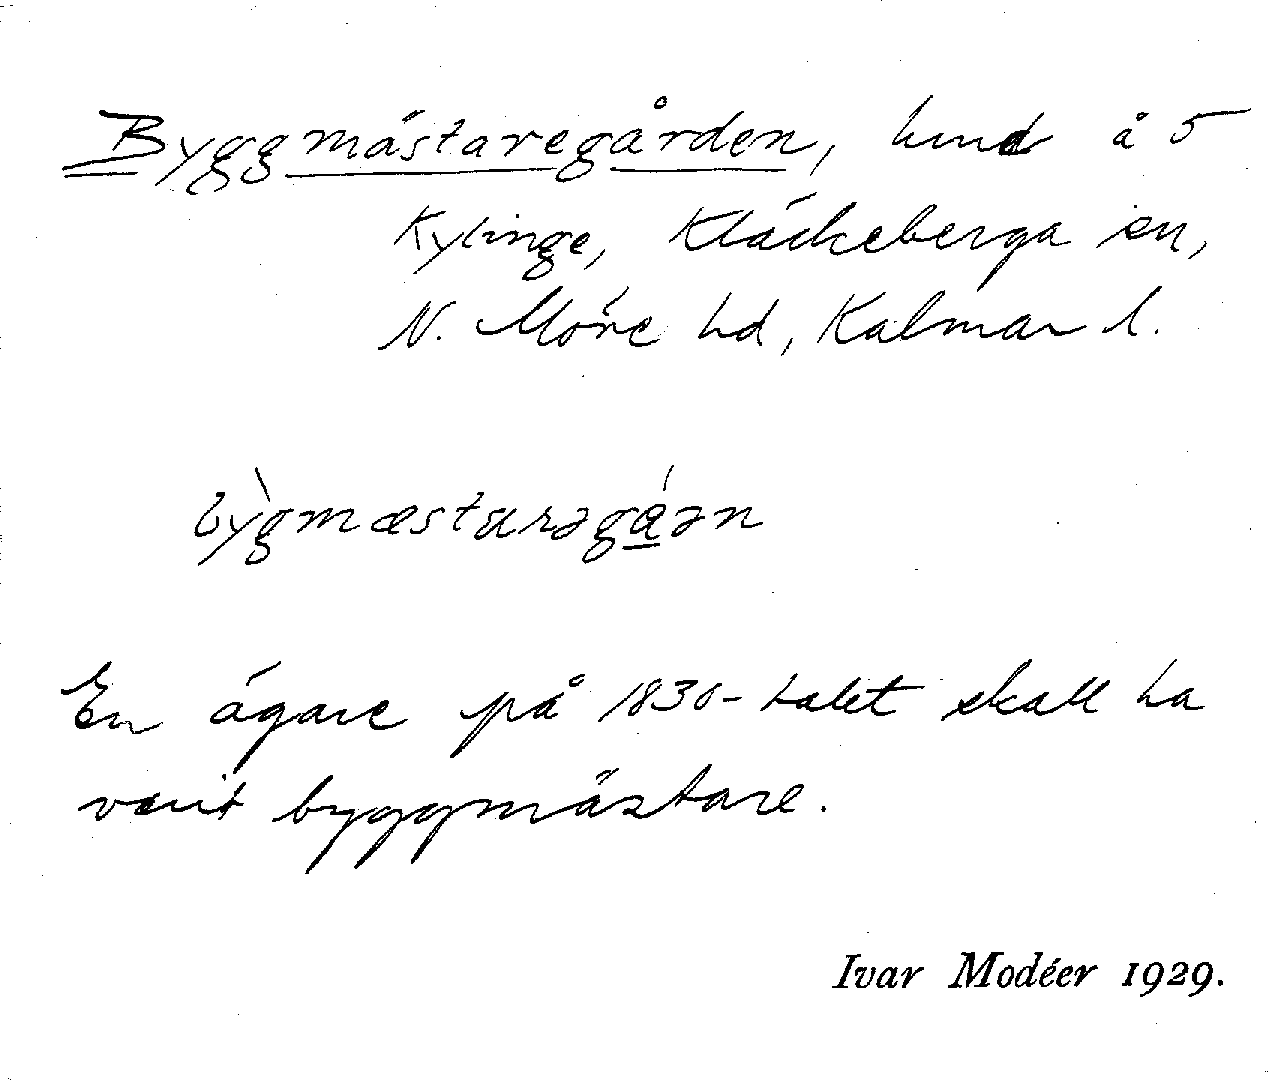 Byggmästaregården, hmd å 5
Kylinge, Kläckeberga sn,
N. Möre hd, Kalmar l.
bỳgmæstarəgá̱ən
En ägare på 1830-talet skall ha
varit byggmästare.
Ivar Modéer 1929.